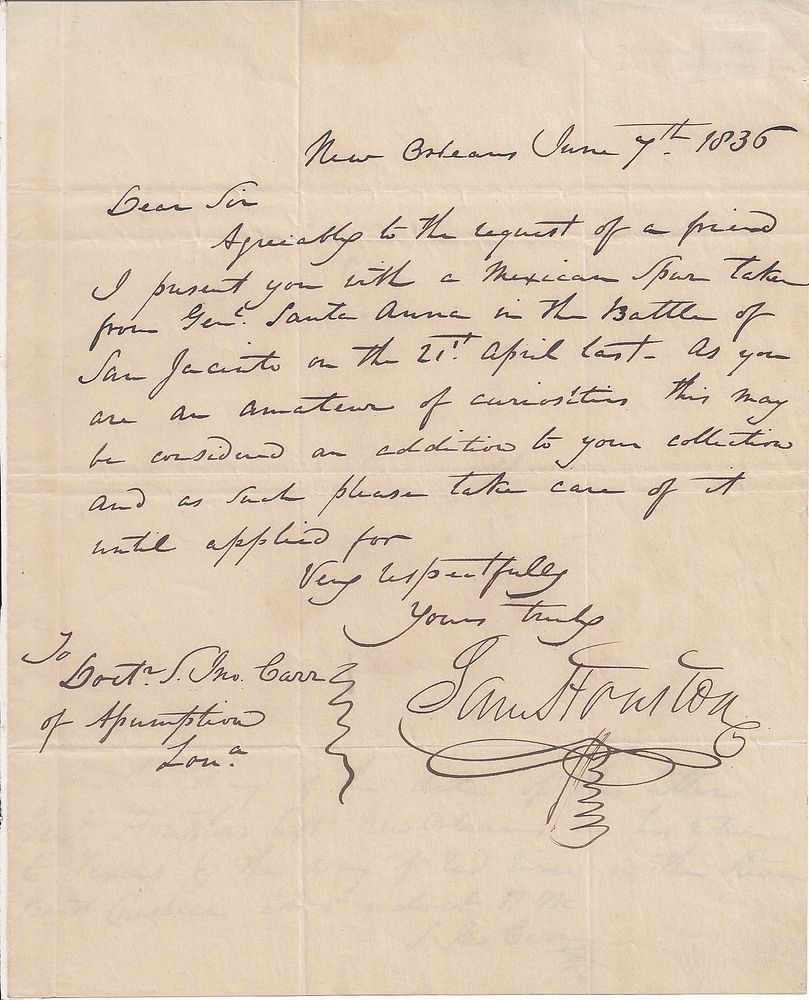 New Orleans June 7th. 1836
Dear Sir
Agreeably to the request of a friend
I present you with a Mexican Spur taken
from Genl. Santa Anna in the Battle of
San Jacinto on the 21st. April last - As you
are an amateur of curiosities this may
be considered an addition to your collection
and as such please take care of it
until applied for
Very respectfully
Yours truly
Sam Houston
To
Doctr. S. Jno. Carr
of Assumption
Loua.